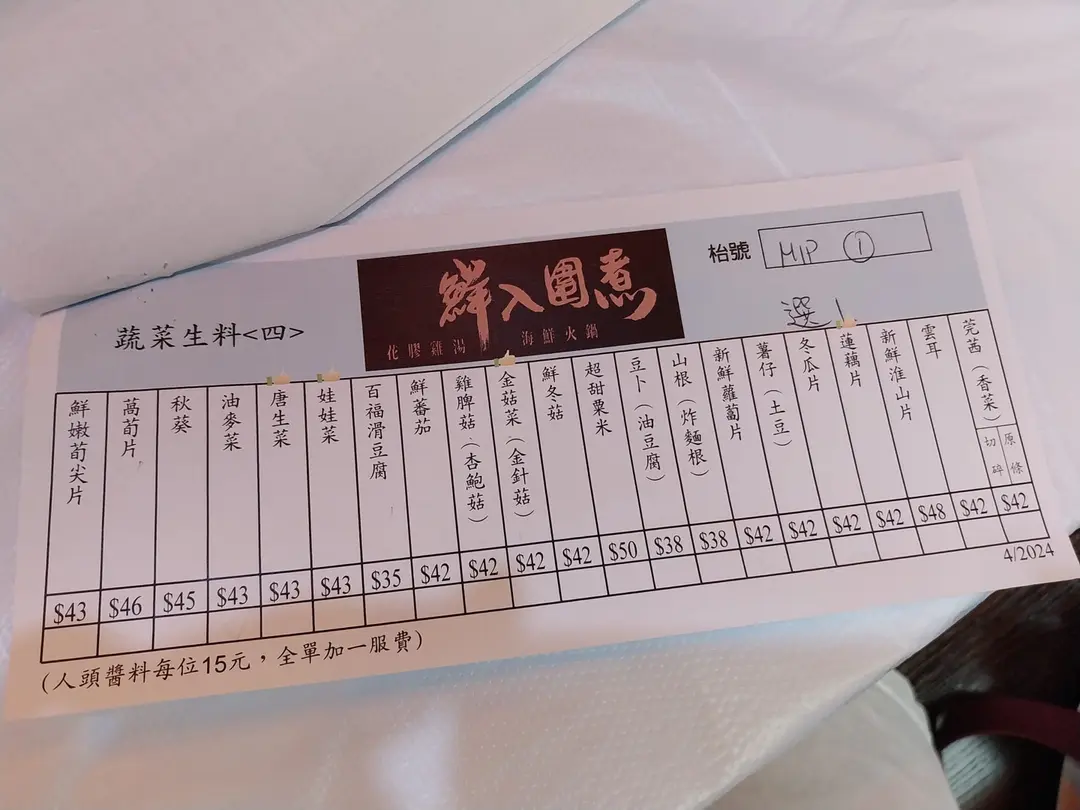 枱號 MJP ①
鮮入圍煮
花膠雞湯 海鮮火鍋
蔬菜生料<四>
選1
鮮嫩荀尖片
萵荀片
秋葵
油麥菜
唐生菜
娃娃菜
百福滑豆腐
鮮蕃茄
雞脾菇(杏鮑菇)
金菇菜(金針菇)
鮮冬菇
超甜粟米
豆卜(油豆腐)
山根(炸麵根)
新鮮蘿蔔片
薯仔(土豆)
冬瓜片
蓮藕片
新鮮淮山片
雲耳
莞茜(香菜)
切碎
原條
$43 $46 $45 $43 $43 $43 $35 $42 $42 $42 $42 $50 $38 $38 $42 $42 $42 $42 $48 $42 $42
4/2024
(人頭醬料每位15元,全單加一服費)